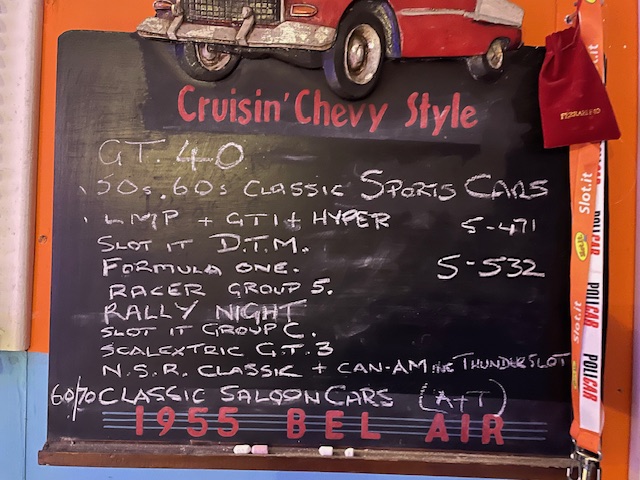 Cruisin' Chevy Style
GT. 40
50s. 60s CLASSIC SPORTS CARS
LMP + GT1 + HYPER 5-471
SLOT IT D.T.M.
FORMULA ONE. 5-532
RACER GROUP 5.
RALLY NIGHT
SLOT IT GROUP C.
SCALEXTRIC G.T.3
N.S.R. CLASSIC + CAN-AM INC THUNDERSLOT
60/70 CLASSIC SALOON CARS (A+T)
1955 BEL AIR
Slot.it
POLICAR
Slot.it
POLICAR